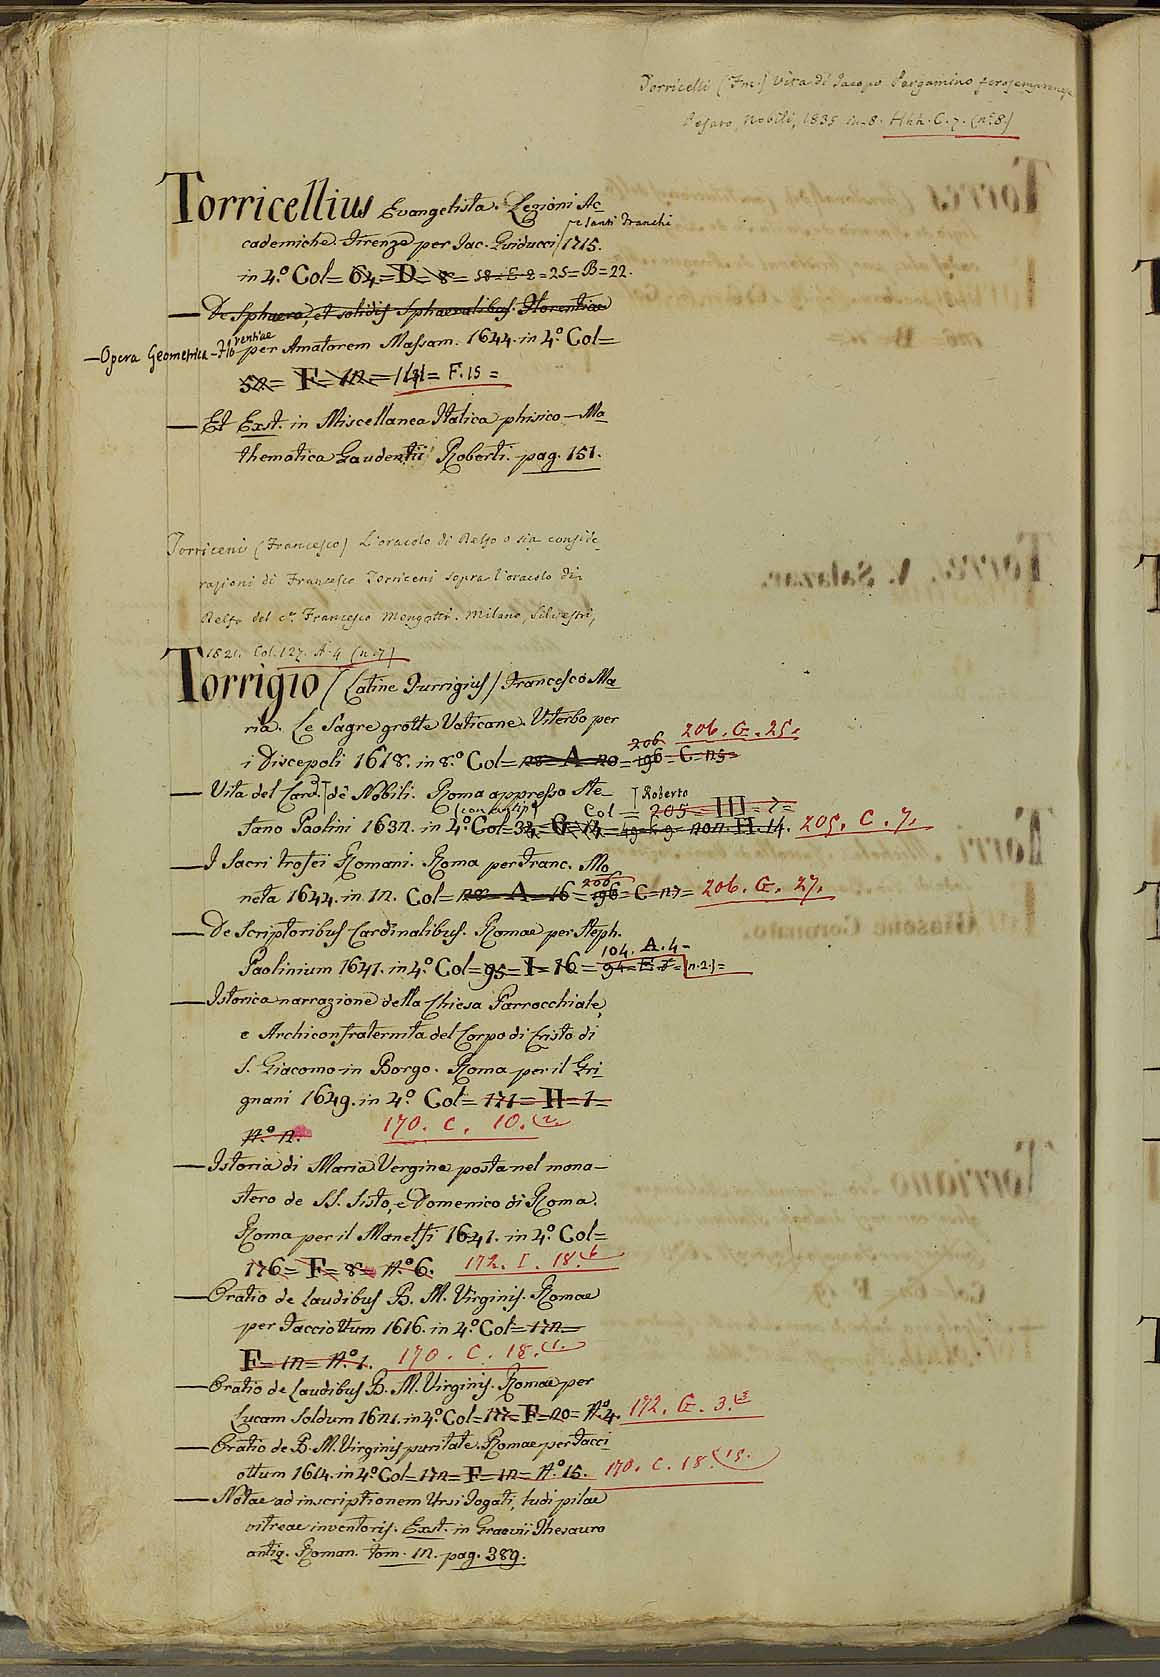 Torricelli (Fnc.) Vita di Jacopo Pergamino forosempronese
Pesaro, Nobili, 1835 in-8. Hhh. C. 7. (n.º 8.)
Torricellius Evangelista. Lezioni Ac
cademiche. Firenze per Jac. Guiducci, e Santi Franchi 1715.
in 4.º Col= 64= D= 8= 58= E= 2= 25= B= 22.
— De Sphaera, et solidis Sphaeralibus. Florentiae
— Opera Geometrica - Florentiae per Amatorem Massam. 1644. in 4.º Col=
52= F= 12= 141= F. 15=
— Et Exst. in Miscellanea Italica phisico-Ma
thematica Gaudentii Roberti. pag. 151.
Torriceni (Francesco) L'oracolo di Delfo o sia conside
razioni di Francesco Torriceni sopra l'oracolo di
Delfo del c.r Francesco Mengotti. Milano, Silvestri,
1821. Col. 127. A. 4 (n. 7)
Torrigio (Latine Turrigius) Francesco Ma
ria. Le Sagre grotte Vaticane. Viterbo per
i Discepoli 1618. in 8.º Col= 28= A= 20= 196= C= 25= 206 206. G. 25.
— Vita del Card. Roberto de' Nobili. Roma appresso Ste
fano Paolini 1632. in 4.º (con antip.) Col= 205= III= 7= 205. C. 7.
— I Sacri trofei Romani. Roma per Franc. Mo
neta 1644. in 12. Col= 28= A= 16= 196= 206 C= 27= 206. G. 27.
— De Scriptoribus Cardinalibus. Romae per Steph.
Paolinium 1641. in 4.º Col= 95= I= 16= 104. A. 4- (n. 2.)=
— Istorica narrazione della Chiesa Parrocchiale,
e Archiconfraternita del Corpo di Cristo di
S. Giacomo in Borgo. Roma per il Gri
gnani 1649. in 4.º Col= 171= H= 1=
N.º 2. 170. C. 10. (2.
— Istoria di Maria Vergine posta nel mona-
stero de SS. Sisto, e Domenico di Roma.
Roma per il Manelfi 1641. in 4.º Col=
176= F= 8= N.º 6. 172. I. 18. (6
— Oratio de laudibus B. M. Virginis. Romae
per Facciottum 1616. in 4.º Col= 172=
F= 12= N.º 1. 170. C. 18. (1.
— Oratio de Laudibus B. M. Virginis. Romae per
Lucam Soldum 1621. in 4.º Col= 177= F= 20= N.º 4. 172. G. 3. (3
— Oratio de B. M. Virginis puritate. Romae per Facci
ottum 1614. in 4.º Col= 172= F= 12= N.º 15. 170. C. 18. (15.
— Notae ad inscriptionem Ursi Togati, ludi pilae
vitreae inventoris. Exst. in Graevii Thesauro
antiq. Roman. tom. 12. pag. 389.